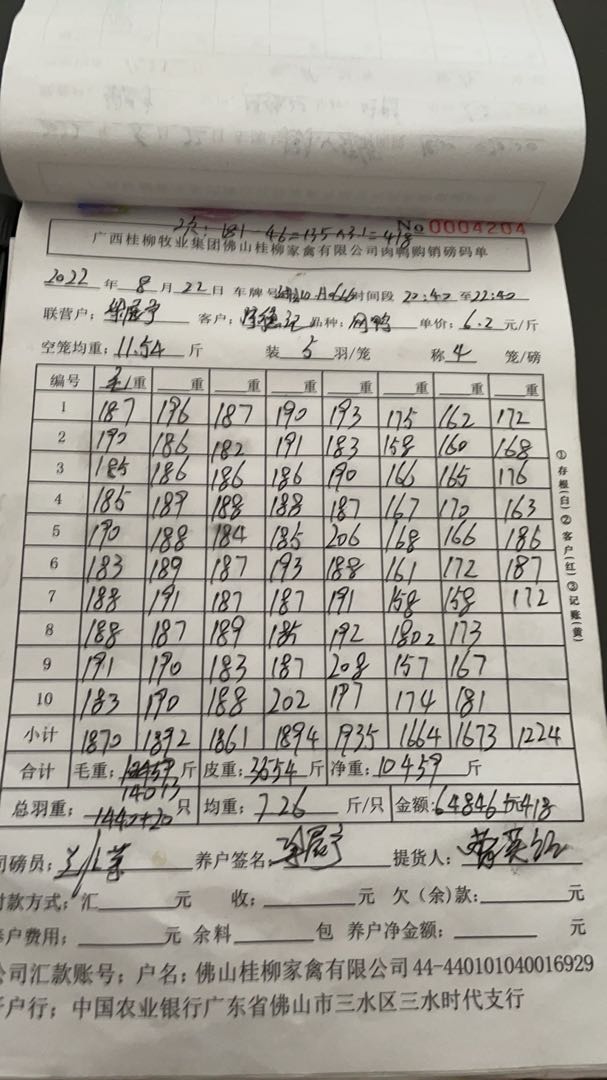 2只: 181-46=135×3.1=418
No 0004204
广西桂柳牧业集团佛山桂柳家禽有限公司肉鸭购销磅码单
2022 年 8 月 22 日 车牌号 时间段 20:40 至 22:40
联营户: 客户: 品种: 单价: 6.2 元/斤
空笼均重: 11.54 斤 装 5 羽/笼 称 4 笼/磅
编号 毛重 重 重 重 重 重 重 重
1 187 196 187 190 193 175 162 172
2 190 186 182 191 183 158 160 168
3 185 186 186 186 190 166 165 176
4 185 189 188 188 187 167 170 163
5 190 188 184 185 206 168 166 186
6 183 189 187 193 188 161 172 187
7 188 191 187 187 191 158 158 172
8 188 187 189 185 192 180 173
9 191 190 183 187 208 157 167
10 183 190 188 202 197 174 181
小计 1870 1892 1861 1894 1935 1664 1673 1224
合计 毛重: 14013 斤 皮重: 3554 斤 净重: 10459 斤
总羽重: 1440+20 只 均重: 7.26 斤/只 金额: 64846
司磅员: 养户签名: 提货人:
付款方式: 汇 元 收: 元 欠(余)款: 元
养户费用: 元 余料 包 养户净金额: 元
公司汇款账号: 户名: 佛山桂柳家禽有限公司 44-440101040016929
开户行: 中国农业银行广东省佛山市三水区三水时代支行
①存根(白)②客户(红)③记账(黄)